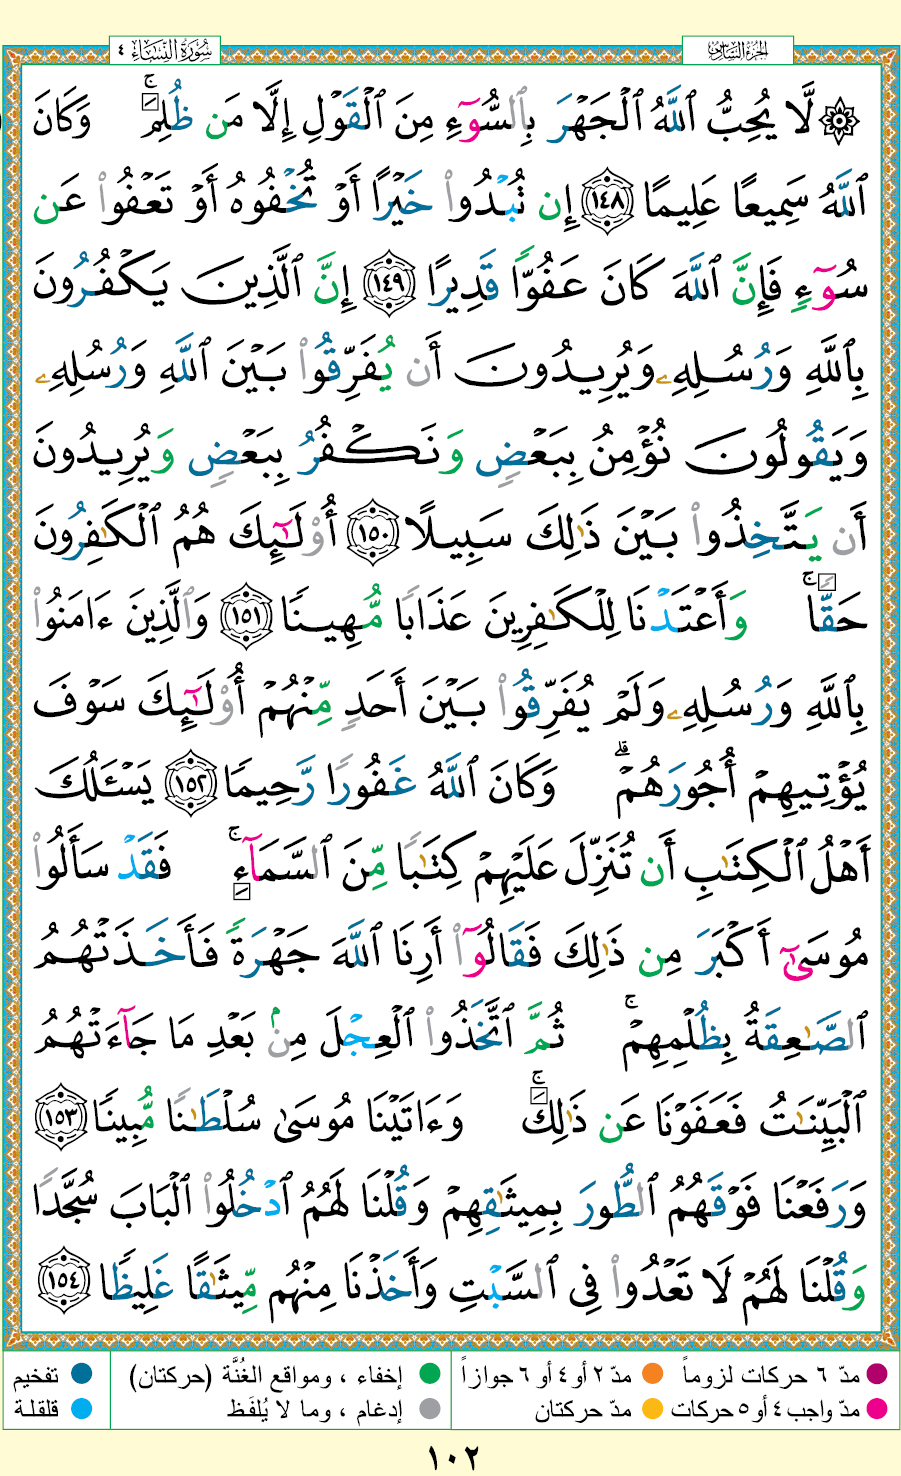 سُورَةُ النِّسَاءِ ٤
الجزء السادس
۞ لَّا يُحِبُّ ٱللَّهُ ٱلْجَهْرَ بِٱلسُّوٓءِ مِنَ ٱلْقَوْلِ إِلَّا مَن ظُلِمَ ۚ وَكَانَ
ٱللَّهُ سَمِيعًا عَلِيمًا ١٤٨ إِن تُبْدُوا۟ خَيْرًا أَوْ تُخْفُوهُ أَوْ تَعْفُوا۟ عَن
سُوٓءٍ فَإِنَّ ٱللَّهَ كَانَ عَفُوًّا قَدِيرًا ١٤٩ إِنَّ ٱلَّذِينَ يَكْفُرُونَ
بِٱللَّهِ وَرُسُلِهِۦ وَيُرِيدُونَ أَن يُفَرِّقُوا۟ بَيْنَ ٱللَّهِ وَرُسُلِهِۦ
وَيَقُولُونَ نُؤْمِنُ بِبَعْضٍ وَنَكْفُرُ بِبَعْضٍ وَيُرِيدُونَ
أَن يَتَّخِذُوا۟ بَيْنَ ذَٰلِكَ سَبِيلًا ١٥٠ أُو۟لَـٰٓئِكَ هُمُ ٱلْكَـٰفِرُونَ
حَقًّا ۚ وَأَعْتَدْنَا لِلْكَـٰفِرِينَ عَذَابًا مُّهِينًا ١٥١ وَٱلَّذِينَ ءَامَنُوا۟
بِٱللَّهِ وَرُسُلِهِۦ وَلَمْ يُفَرِّقُوا۟ بَيْنَ أَحَدٍ مِّنْهُمْ أُو۟لَـٰٓئِكَ سَوْفَ
يُؤْتِيهِمْ أُجُورَهُمْ ۗ وَكَانَ ٱللَّهُ غَفُورًا رَّحِيمًا ١٥٢ يَسْـَٔلُكَ
أَهْلُ ٱلْكِتَـٰبِ أَن تُنَزِّلَ عَلَيْهِمْ كِتَـٰبًا مِّنَ ٱلسَّمَآءِ ۚ فَقَدْ سَأَلُوا۟
مُوسَىٰٓ أَكْبَرَ مِن ذَٰلِكَ فَقَالُوٓا۟ أَرِنَا ٱللَّهَ جَهْرَةً فَأَخَذَتْهُمُ
ٱلصَّـٰعِقَةُ بِظُلْمِهِمْ ۚ ثُمَّ ٱتَّخَذُوا۟ ٱلْعِجْلَ مِنۢ بَعْدِ مَا جَآءَتْهُمُ
ٱلْبَيِّنَـٰتُ فَعَفَوْنَا عَن ذَٰلِكَ ۚ وَءَاتَيْنَا مُوسَىٰ سُلْطَـٰنًا مُّبِينًا ١٥٣
وَرَفَعْنَا فَوْقَهُمُ ٱلطُّورَ بِمِيثَـٰقِهِمْ وَقُلْنَا لَهُمُ ٱدْخُلُوا۟ ٱلْبَابَ سُجَّدًا
وَقُلْنَا لَهُمْ لَا تَعْدُوا۟ فِى ٱلسَّبْتِ وَأَخَذْنَا مِنْهُم مِّيثَـٰقًا غَلِيظًا ١٥٤
مدّ ٦ حركات لزوماً مدّ ٢ أو ٤ أو ٦ جوازاً إخفاء ، ومواقع الغُنَّة (حركتان) تفخيم
مدّ واجب ٤ أو ٥ حركات مدّ حركتان إدغام ، وما لا يُلفَظ قلقلة
١٠٢